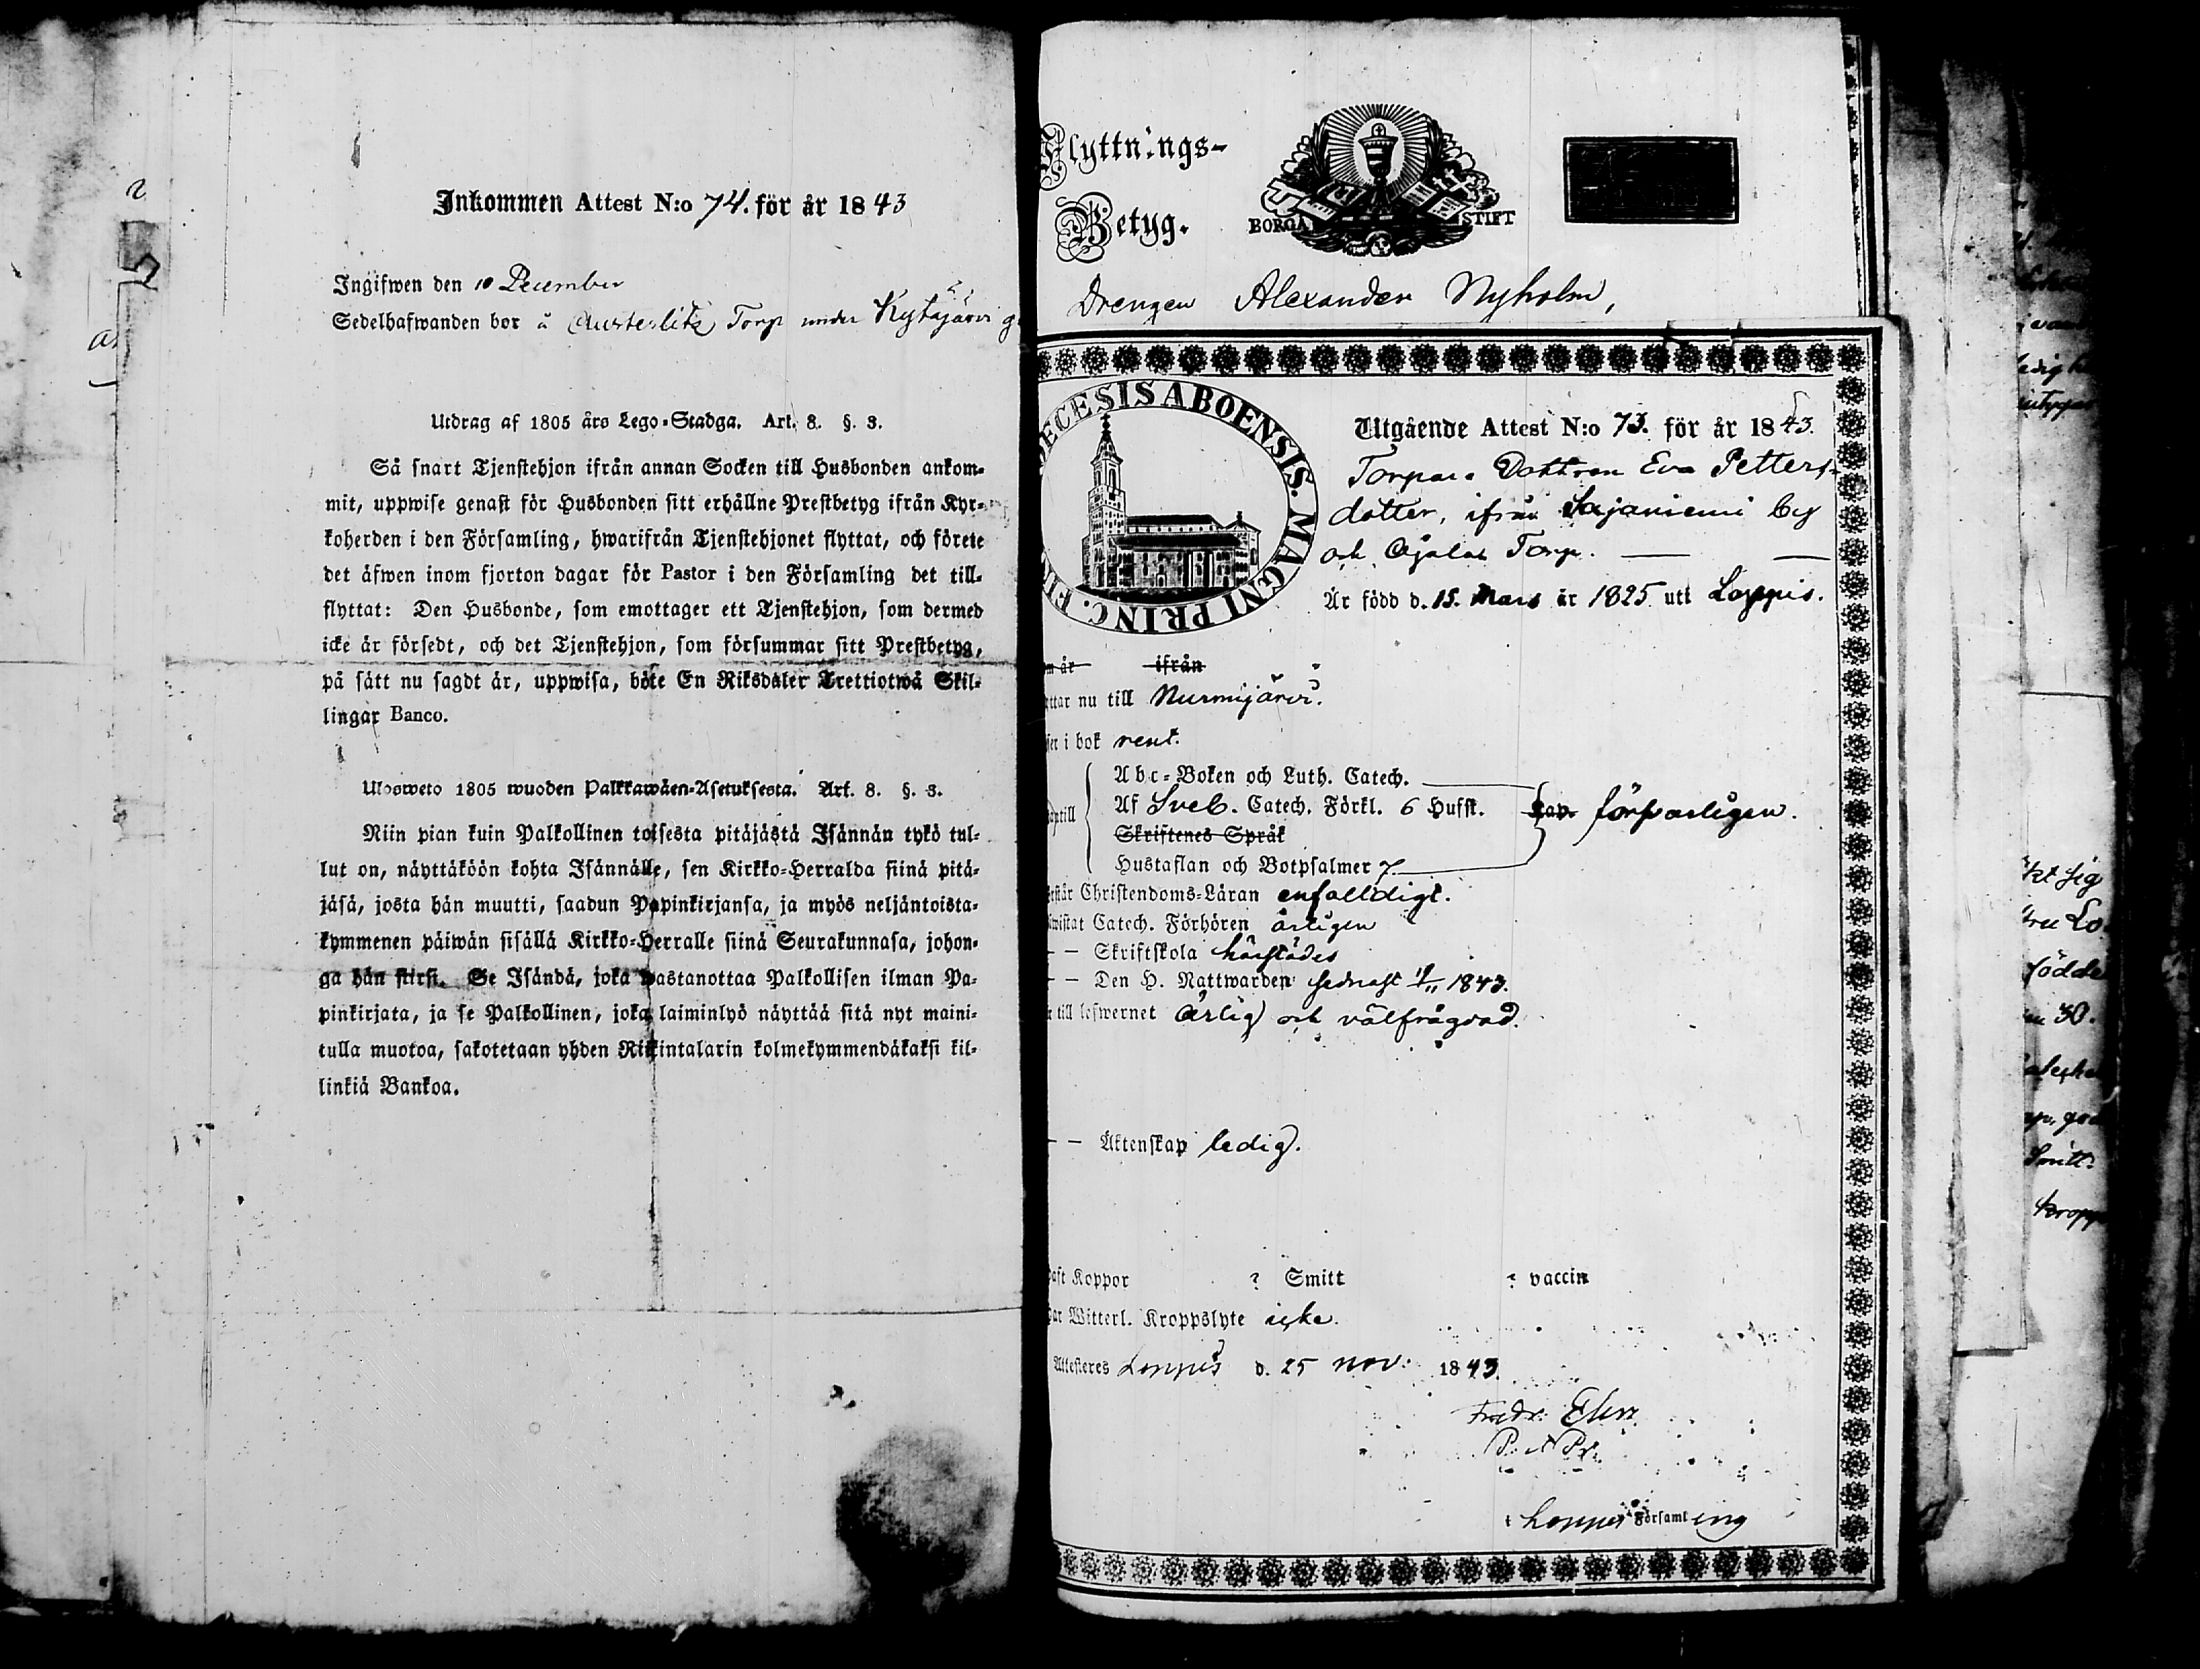 Inkommen Attest N:o 74. för år 1843
Ingifwen den 10 December
Sedelhafwanden bor å Austerlitz Torp under Kytäjärvi
Utdrag af 1805 års Lego-Stadga. Art. 8. §. 3.
Så snart Tjenstehjon ifrån annan Socken till Husbonden ankom-
mit, uppwise genast för Husbonden sitt erhållne Prestbetyg ifrån Kyr-
koherden i den Församling, hwarifrån Tjenstehjonet flyttat, och förete
det äfwen inom fjorton dagar för Pastor i den Församling det till-
flyttat: Den Husbonde, som emottager ett Tjenstehjon, som dermed
icke är försedt, och det Tjenstehjon, som försummar sitt Prestbetyg,
på sätt nu sagdt är, uppwisa, böte En Riksdaler Trettiotwå Skil-
lingar Banco.
Ulosweto 1805 wuoden Palkkawäen-Asetuksesta. Art. 8. §. 3.
Niin pian kuin Palkollinen toisesta pitäjästä Isännän tykö tul-
lut on, näyttäköön kohta Isännälle, sen Kirkko-Herralda siinä pitä-
jäsä, josta hän muutti, saadun Papinkirjansa, ja myös neljäntoista-
kymmenen päiwän sisällä Kirkko-Herralle siinä Seurakunnasa, johon-
ga hän siirsi. Se Isändä, joka wastanottaa Palkollisen ilman Pa-
pinkirjata, ja se Palkollinen, joka laiminlyö näyttää sitä nyt maini-
tulla muotoa, sakotetaan yhden Riikintalarin kolmekymmendäkaksi kil-
linkiä Bankoa.
Flyttnings-
Betyg.
BORGÅ STIFT
Drengen Alexander Nyholm,
DIOECESIS ABOENSIS. MAGNI PRINC. FIN
Utgående Attest N:o 73. för år 1843.
Torpare Dottren Eva Petters-
dotter, ifrån Sajaniemi by
och Ojalas Torp.
Är född d. 15. Mars år 1825 uti Loppis.
år ifrån
ttar nu till Nurmijärvi.
ser i bok rent.
Abc-Boken och Luth. Catech.
Af Sveb. Catech. Förkl. 6 Hufst. förswarligen.
Skriftenes Språk
Hustaflan och Botpsalmer 7.
rstår Christendoms-Läran enfalldigt.
wistat Catech. Förhören årligen
– – Skriftskola härstädes
– – Den H. Nattwarden sednast 1843.
till lefwernet Ärlig och välfrägdad.
– – Äktenskap ledig.
aft Koppor ? Smitt ? vaccin
ar Witterl. Kroppslyte icke.
Attesteres Loppis d. 25 nov. 1843.
Fredr.
i Loppis Församling